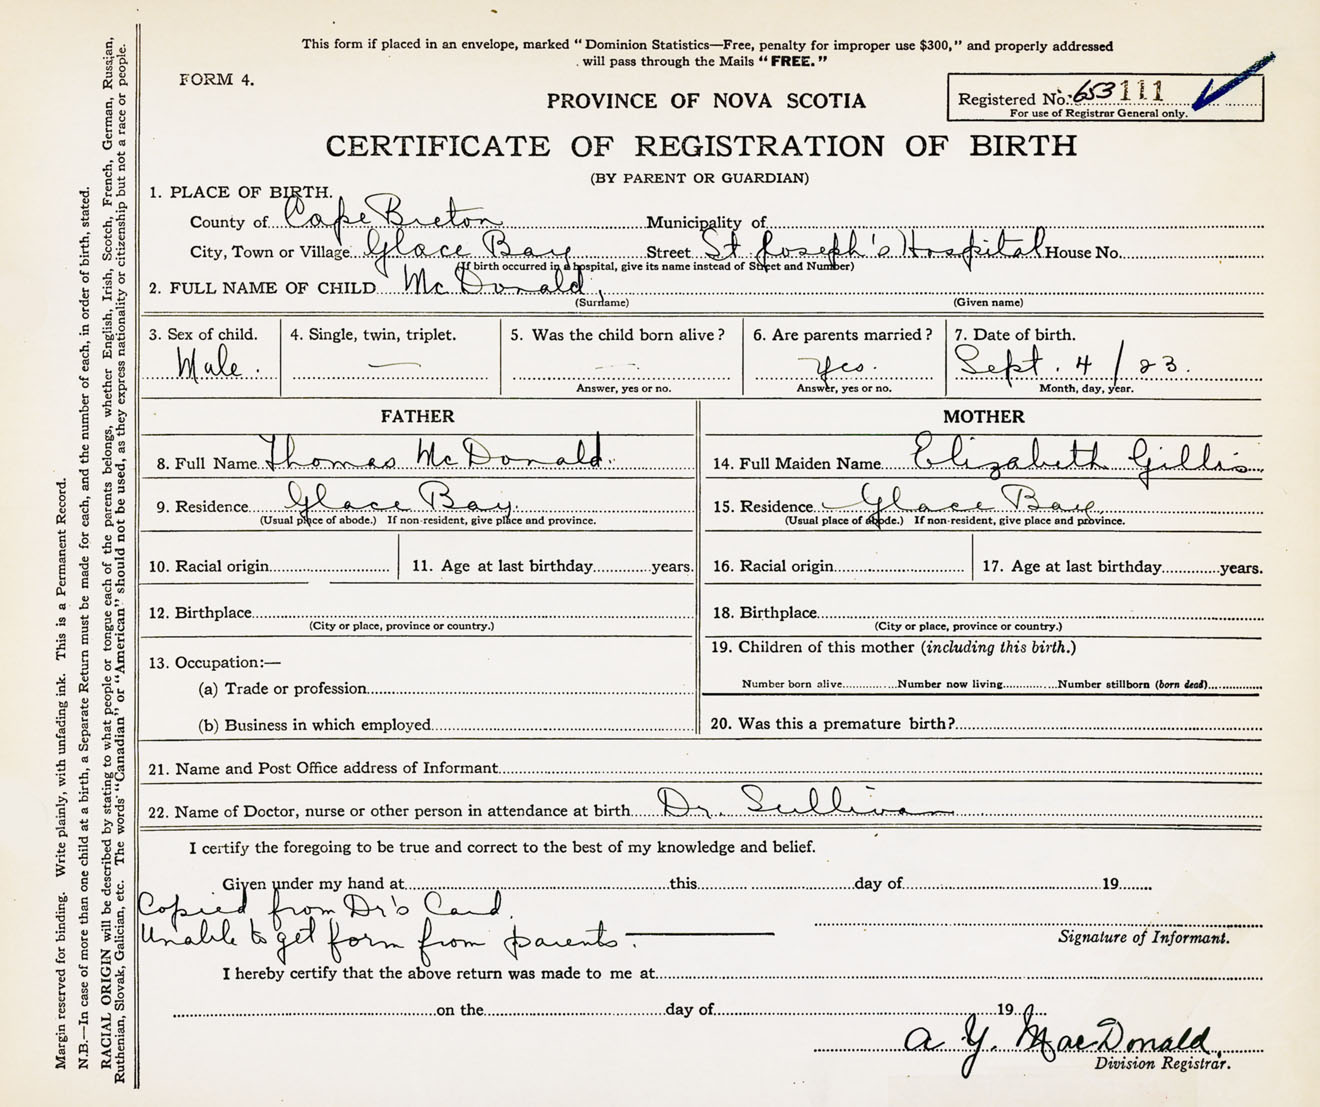 This form if placed in an envelope, marked "Dominion Statistics—Free, penalty for improper use $300," and properly addressed
will pass through the Mails "FREE."
FORM 4.
PROVINCE OF NOVA SCOTIA
Registered No. 653111
For use of Registrar General only.
CERTIFICATE OF REGISTRATION OF BIRTH
(BY PARENT OR GUARDIAN)
1. PLACE OF BIRTH.
County of Cape Breton Municipality of
City, Town or Village Glace Bay Street St Joseph's Hospital House No.
(If birth occurred in a hospital, give its name instead of Street and Number)
2. FULL NAME OF CHILD McDonald,
(Surname) (Given name)
3. Sex of child. 4. Single, twin, triplet. 5. Was the child born alive? 6. Are parents married? 7. Date of birth.
Male. — — Yes. Sept. 4/23.
Answer, yes or no. Answer, yes or no. Month, day, year.
FATHER MOTHER
8. Full Name Thomas McDonald. 14. Full Maiden Name Elizabeth Gillis
9. Residence Glace Bay. 15. Residence Glace Bay
(Usual place of abode.) If non-resident, give place and province. (Usual place of abode.) If non-resident, give place and province.
10. Racial origin 11. Age at last birthday years. 16. Racial origin 17. Age at last birthday years.
12. Birthplace 18. Birthplace
(City or place, province or country.) (City or place, province or country.)
19. Children of this mother (including this birth.)
13. Occupation:—
(a) Trade or profession Number born alive Number now living Number stillborn (born dead)
(b) Business in which employed 20. Was this a premature birth?
21. Name and Post Office address of Informant
22. Name of Doctor, nurse or other person in attendance at birth Dr. Sullivan
I certify the foregoing to be true and correct to the best of my knowledge and belief.
Given under my hand at this day of 19
Copied from Dr's Card.
Unable to get form from parents.
Signature of Informant.
I hereby certify that the above return was made to me at
on the day of 19
A. Y. MacDonald,
Division Registrar.
Margin reserved for binding. Write plainly, with unfading ink. This is a Permanent Record.
N.B.—In case of more than one child at a birth, a Separate Return must be made for each, and the number of each, in order of birth, stated.
RACIAL ORIGIN will be described by stating to what people or tongue each of the parents belongs, whether English, Irish, Scotch, French, German, Russian,
Ruthenian, Slovak, Galician, etc. The words "Canadian" or "American" should not be used, as they express nationality or citizenship but not a race or people.